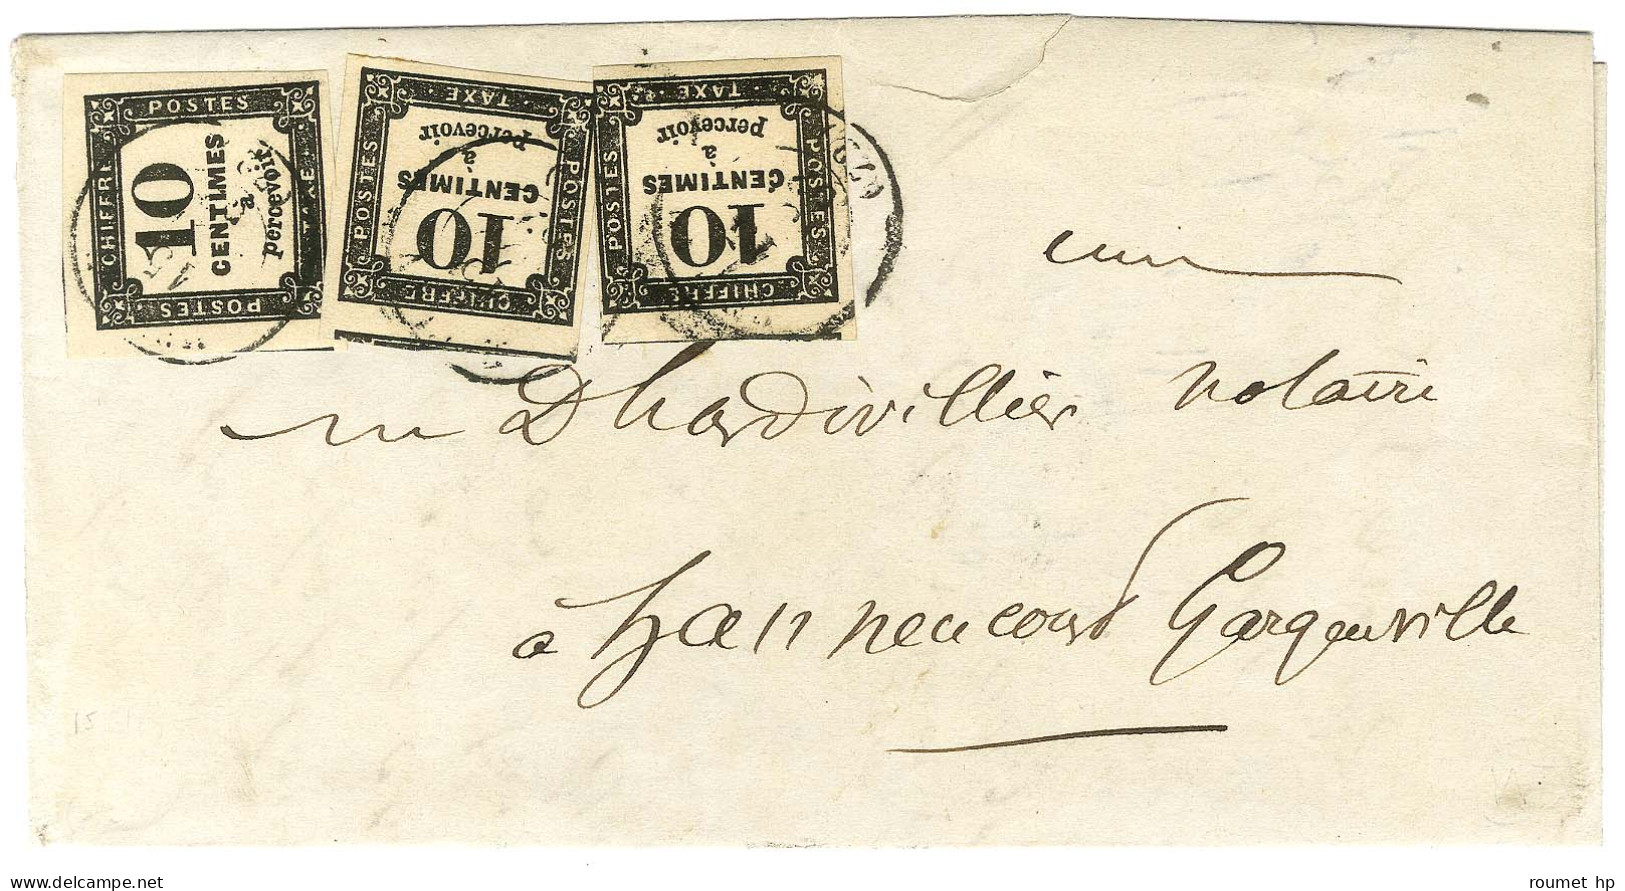 POSTES
CHIFFRE
TAXE
POSTES
10
CENTIMES
à
percevoir
CHIFFRE
POSTES
TAXE
POSTES
10
CENTIMES
à
percevoir
CHIFFRE
POSTES
TAXE
POSTES
10
CENTIMES
à
percevoir
Dhardivillier notaire
à hanneucourt Gargenville
15
delcampe.net
roumet hp